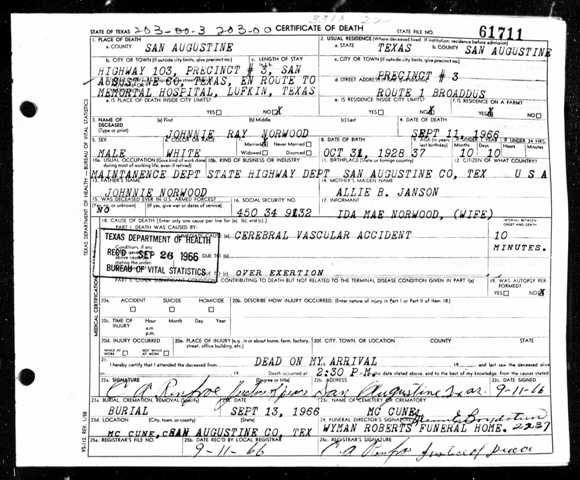 STATE OF TEXAS 203-00-3 203-00 CERTIFICATE OF DEATH STATE FILE NO. 61711
1. PLACE OF DEATH
a. COUNTY SAN AUGUSTINE
2. USUAL RESIDENCE (Where deceased lived. If institution: residence before admission)
a. STATE TEXAS b. COUNTY SAN AUGUSTINE
b. CITY OR TOWN (If outside city limits, give precinct no.) c. LENGTH OF STAY
HIGHWAY 103, PRECINCT # 3, SAN
AUGUSTINE CO, TEXAS, EN ROUTE TO
MEMORIAL HOSPITAL, LUFKIN, TEXAS
c. CITY OR TOWN (If outside city limits, give precinct no.)
PRECINCT # 3
d. STREET ADDRESS
ROUTE 1 BROADDUS
e. IS PLACE OF DEATH INSIDE CITY LIMITS? YES NO X
e. IS RESIDENCE INSIDE CITY LIMITS? YES NO X
f. IS RESIDENCE ON A FARM? YES NO X
3. NAME OF DECEASED (Type or print) (a) First (b) Middle (c) Last
JOHNNIE RAY NORWOOD
4. DATE OF DEATH
SEPT 11, 1966
5. SEX
MALE
WHITE
Married X Never Married
Widowed Divorced
8. DATE OF BIRTH
OCT 31, 1928 37 10 10
10a. USUAL OCCUPATION (Give kind of work done 10b. KIND OF BUSINESS OR INDUSTRY
MAINTANENCE DEPT STATE HIGHWAY DEPT
11. BIRTHPLACE (State or foreign country)
SAN AUGUSTINE CO, TEX
12. CITIZEN OF WHAT COUNTRY?
U S A
13. FATHER'S NAME
JOHNNIE NORWOOD
14. MOTHER'S MAIDEN NAME
ALLIE B. JANSON
15. WAS DECEASED EVER IN U.S. ARMED FORCES?
NO
16. SOCIAL SECURITY NO.
450 34 9132
17. INFORMANT
IDA MAE NORWOOD, (WIFE)
18. CAUSE OF DEATH (Enter only one cause per line for (a), (b), and (c).)
PART I. DEATH WAS CAUSED BY:
INTERVAL BETWEEN ONSET AND DEATH
CEREBRAL VASCULAR ACCIDENT
10 MINUTES.
TEXAS DEPARTMENT OF HEALTH
REC'D SEP 26 1966
BUREAU OF VITAL STATISTICS
DUE TO
OVER EXERTION
CONDITIONS CONTRIBUTING TO DEATH BUT NOT RELATED TO THE TERMINAL DISEASE CONDITION GIVEN IN PART I(a)
19. WAS AUTOPSY PERFORMED?
YES NO X
20a. ACCIDENT SUICIDE HOMICIDE
20b. DESCRIBE HOW INJURY OCCURRED. (Enter nature of injury in Part I or Part II of item 18)
20c. TIME OF INJURY Hour Month Day Year
a.m.
p.m.
20d. INJURY OCCURRED
WHILE AT WORK NOT WHILE AT WORK
20e. PLACE OF INJURY (e.g. in or about home, farm, factory, street, office building, etc.)
20f. CITY, TOWN, OR LOCATION COUNTY STATE
21. I hereby certify that I attended the deceased from DEAD ON MY ARRIVAL and last saw the deceased alive
Death occurred at 2:30 P.M. on the date stated above, and to the best of my knowledge, from the causes stated.
22a. SIGNATURE (Degree or title)
22b. ADDRESS
San Augustine Texas
22c. DATE SIGNED
9-11-66
23a. BURIAL, CREMATION, REMOVAL
BURIAL
SEPT 13, 1966
23c. NAME OF CEMETERY OR CREMATORY
MC CUNE
23d. LOCATION (City, town, or county) (State)
MC CUNE, SAN AUGUSTINE CO, TEX
24. FUNERAL DIRECTOR'S SIGNATURE
WYMAN ROBERTS FUNERAL HOME. 2237
25a. REGISTRAR'S FILE NO.
25b. DATE REC'D BY LOCAL REGISTRAR
9-11-66
25c. REGISTRAR'S SIGNATURE
Justice of Peace
TEXAS DEPARTMENT OF HEALTH—BUREAU OF VITAL STATISTICS
MEDICAL CERTIFICATION